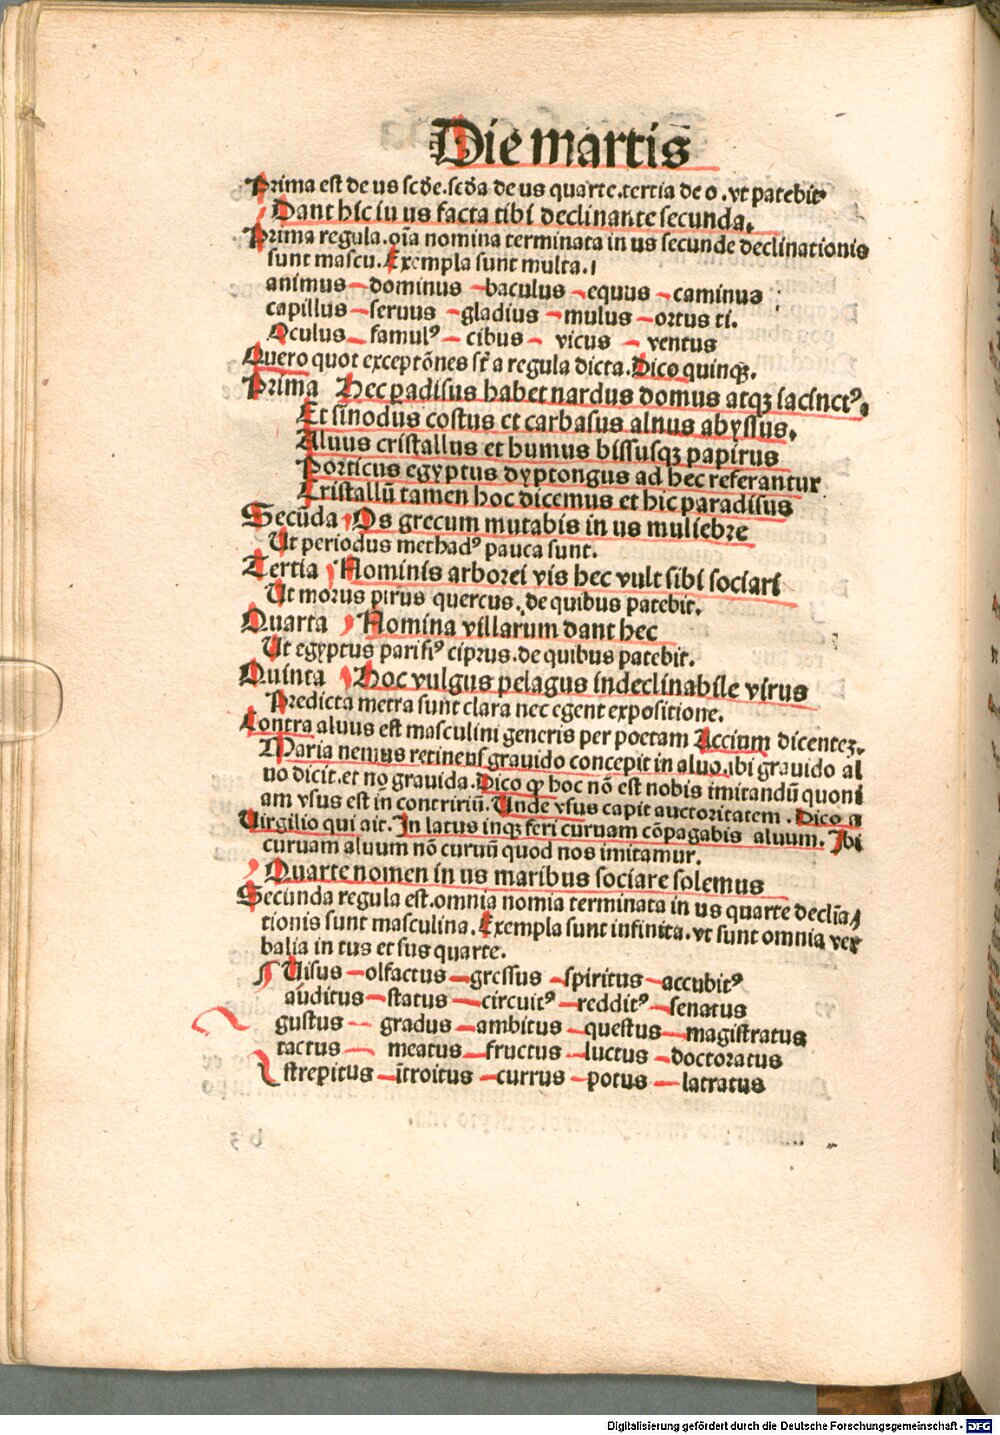 Die martis
Prima est de us scđe.scđa de us quarte.tertia de o.vt patebit
Dant hic in us facta tibi declinante secunda.
Prima regula.oīa nomina terminata in us secunde declinationis
sunt mascu.Exempla sunt multa.
animus dominus baculus equus caminus
capillus seruus gladius mulus ortus ti.
Oculus famulꝰ cibus vicus ventus
Quero quot exceptōnes sūt a regula dicta.Dico quinqꝫ.
Prima Hec padisus habet nardus domus atqꝫ iacinctꝰ.
Et sīnodus costus et carbasus alnus abyssus.
Aluus cristallus et humus bissusqꝫ papirus
Porticus egyptus dyptongus ad hec referantur
Cristallū tamen hoc dicemus et hic paradisus
Secūda Os grecum mutabis in us muliebre
Ut periodus methadꝰ pauca sunt.
Tertia Nominis arborei vis hec vult sibi sociari
Ut morus pirus quercus.de quibus patebit.
Quarta Nomina villarum dant hec
Ut egyptus parisꝰ ciprus.de quibus patebit.
Quinta Hoc vulgus pelagus indeclinabile virus
Predicta metra sunt clara nec egent expositione.
Contra aluus est masculini generis per poetam Accium dicentēꝫ.
Maria nemus retinens grauido concepit in aluo.ibi grauido al
uo dicit.et nō grauida.Dico ꝙ hoc nō est nobis imitandū quoni
am vsus est in contririū.Unde vsus capit auctoritatem.Dico a
Uirgilio qui ait.In latus inqꝫ feri curuam cōpagabis aluum.Ibi
curuam aluum nō curuū quod nos imitamur.
Quarte nomen in us maribus sociare solemus
Secunda regula est.omnia nomia terminata in us quarte declīa
tionis sunt masculina.Exempla sunt infinita.vt sunt omnia ver
balia in tus et sus quarte.
Uisus olfactus gressus spiritus accubitꝰ
auditus status circuitꝰ redditꝰ senatus
gustus gradus ambitus questus magistratus
tactus meatus fructus luctus doctoratus
strepitus ītroitus currus potus latratus
Digitalisierung gefördert durch die Deutsche Forschungsgemeinschaft - DFG